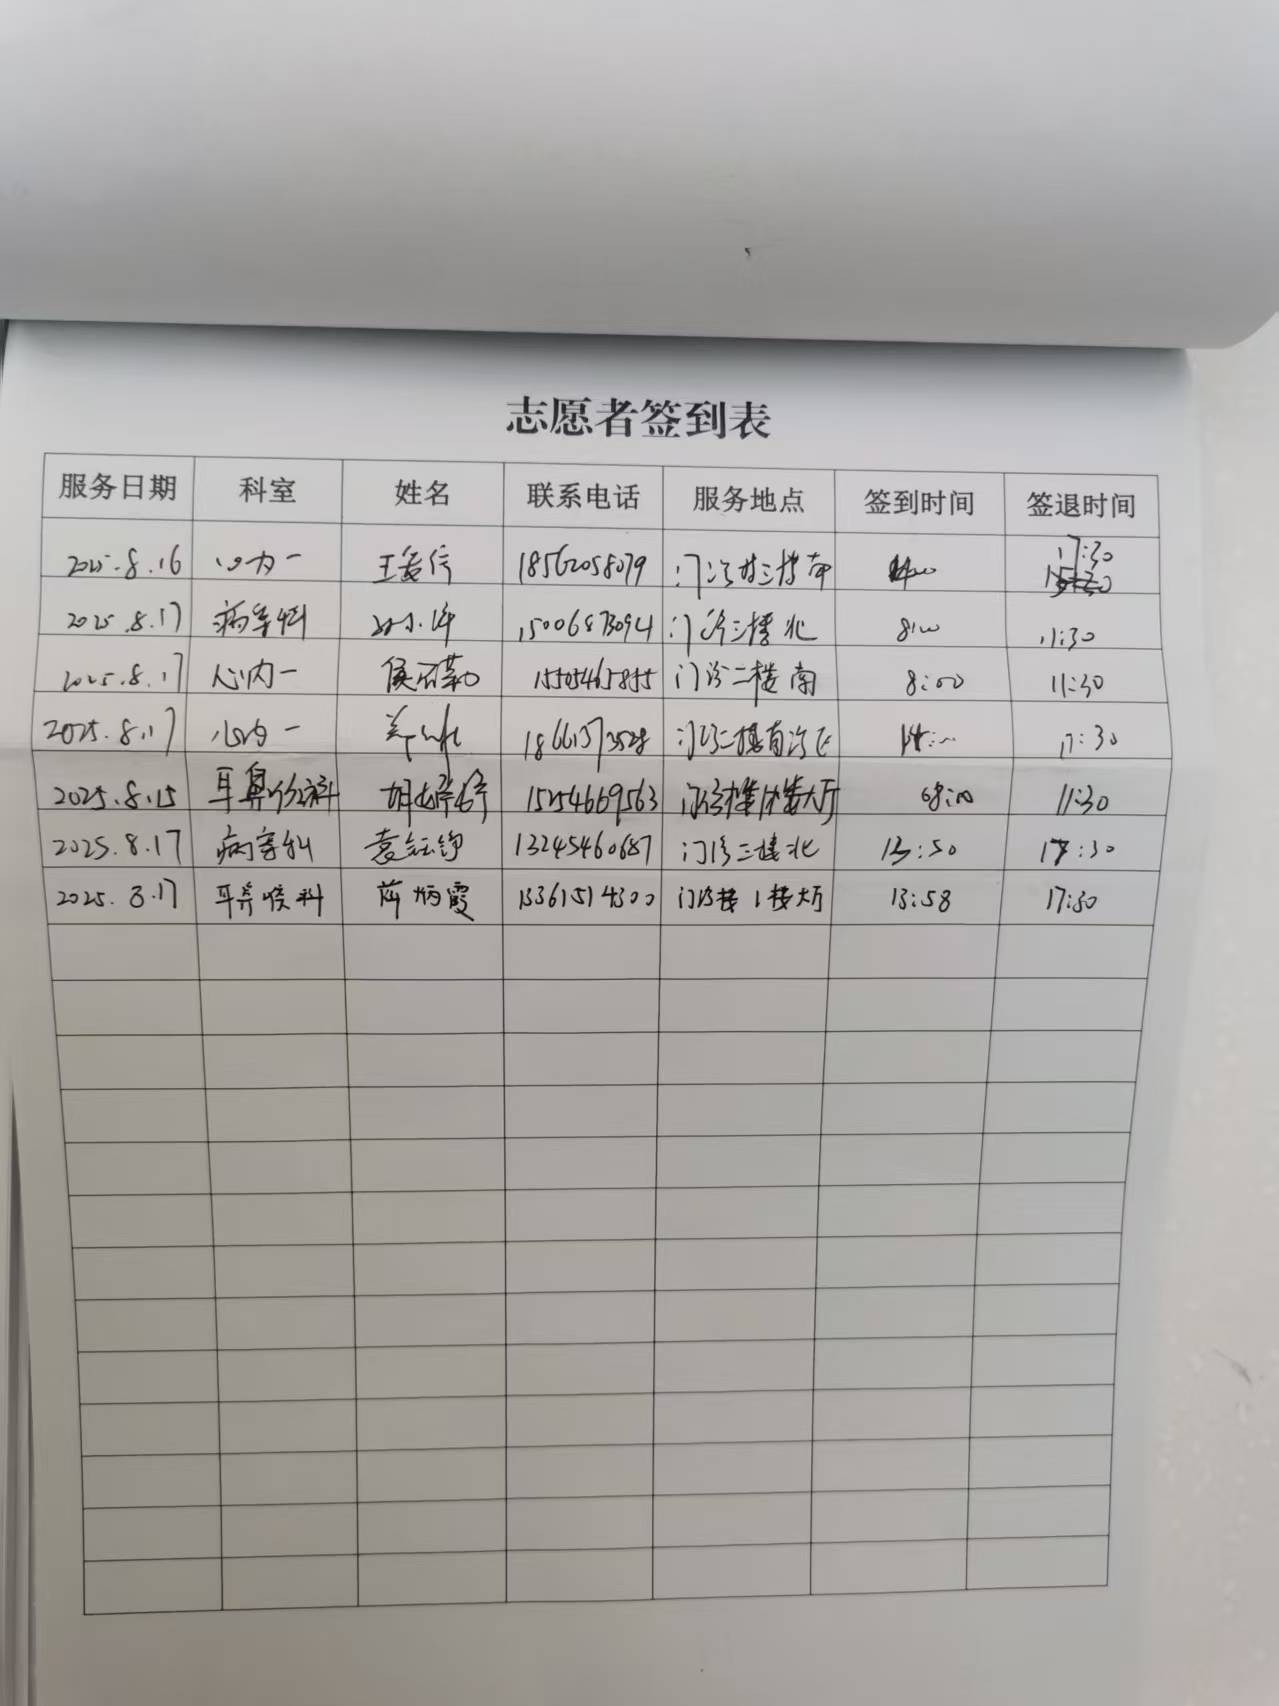 志愿者签到表
服务日期 科室 姓名 联系电话 服务地点 签到时间 签退时间
2025.8.16 心内一 18562058079 门诊楼三楼南 17:30
2025.8.17 病案科 15006873094 门诊三楼北 8:00 11:30
2025.8.17 心内一 15505465855 门诊二楼南 8:00 11:30
2025.8.17 心内一 18661373528 14:00 17:30
2025.8.15 胡婷婷 15254669563 08:00 11:30
2025.8.17 病案科 袁钰铮 13245460687 门诊三楼北 13:50 17:30
2025.8.17 耳鼻喉科 薛炳霞 13361514300 门诊楼1楼大厅 13:58 17:30